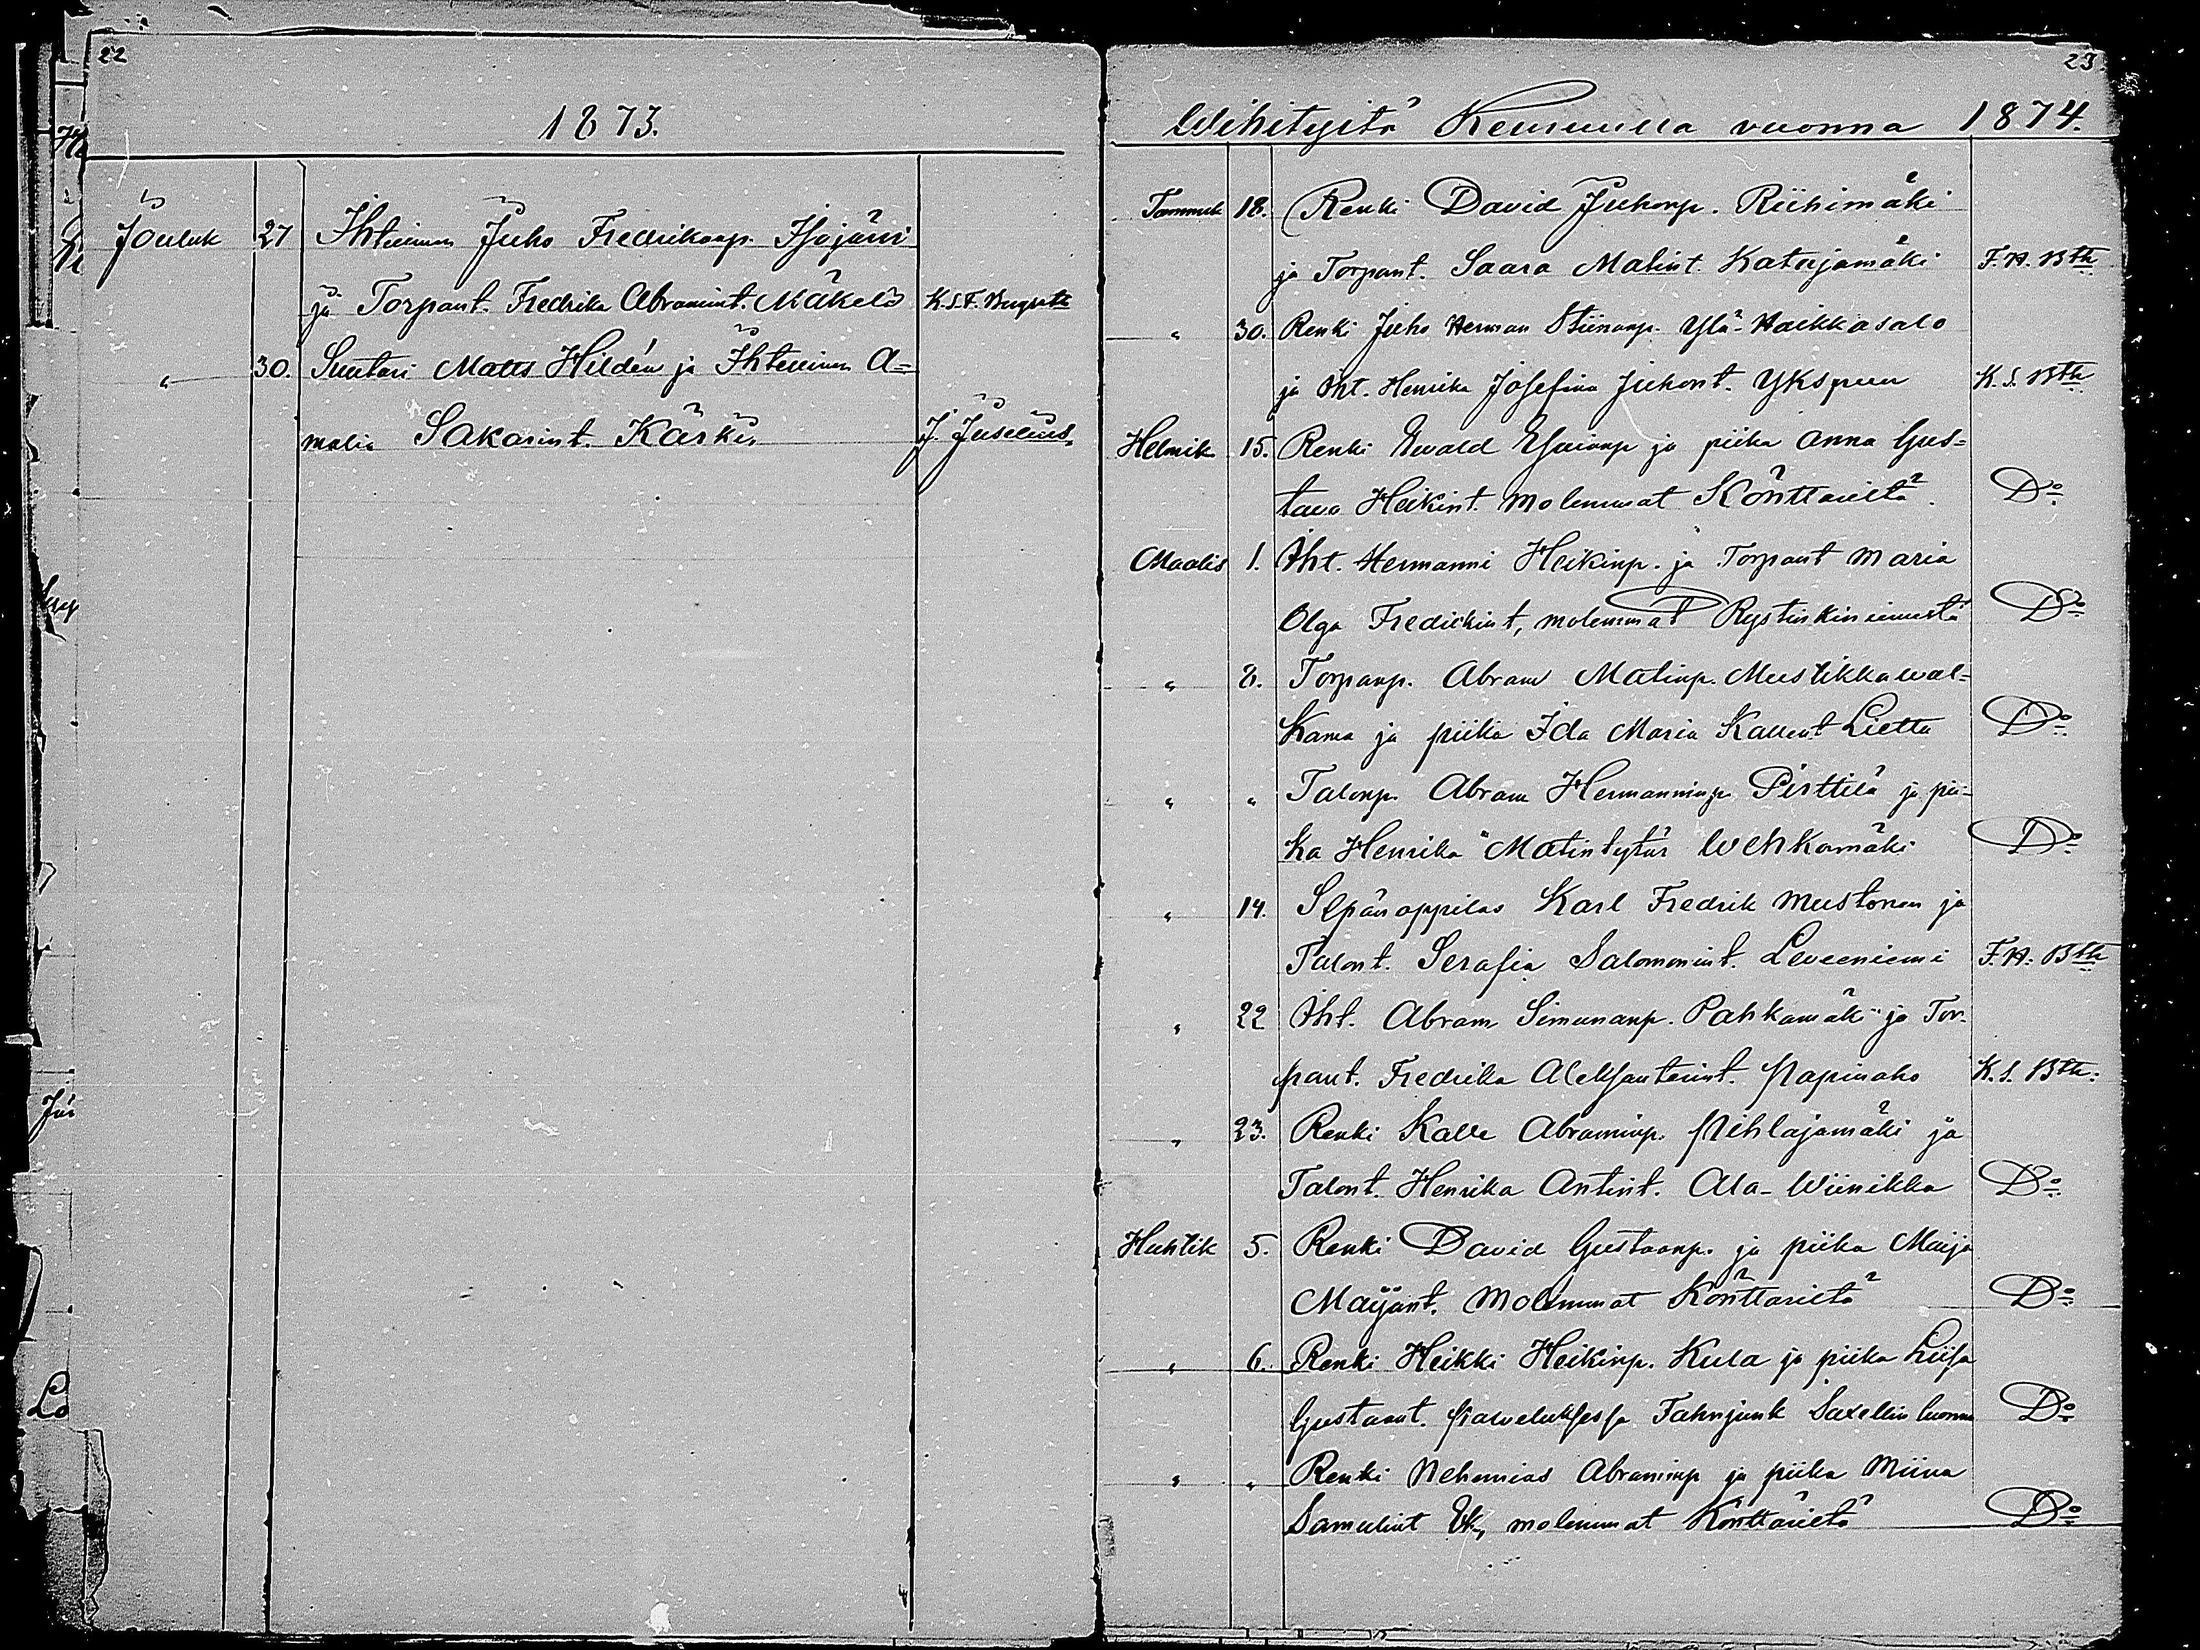 22
1873.
Jouluk 27 Ihtellinen Juho Fredrikanp. Isojärvi
ja Torpant. Fredrika Abramint. Mäkelä K.S.F. Bergroth
" 30. Suutari Matts Hildén ja Ihtellinen A=
malia Sakarint. Kärki. J. Juselius.
23.
Wihityitä Keuruulla vuonna 1874.
Tammik 18. Renki David Juhonp. Riihimäki
ja Torpant. Saara Matint. Katajamäki F.H. Bth
" 30. Renki Juho Herman Stiinanp. Ylä-Haikkasalo
ja Iht. Henrika Josefina Juhont. Ykspuu K.S. Bth.
Helmik 15. Renki Ewald Esaianp ja piika Anna Gus=
tava Heikint. molemmat Könttäristä. Do.
Maalis 1. Iht. Hermanni Heikinp. ja Torpant Maria
Olga Fredrikint, molemmat Rystinkiniemestä Do
" 8. Torpanp. Abram Matinp. Mustikkawal=
kama ja piika Ida Maria Kallent Lietta Do
" " Talonp. Abram Hermanninp Pirttilä ja pii-
ka Henrika Matintytär Wehkamäki Do
" 14. Sepänoppilas Karl Fredrik Mustonen ja
Talont. Serafia Salomonint. Leveeniemi F.H. Bth
" 22 Iht. Abram Simunanp. Pahkamäki ja Tor-
pant. Fredrika Aleksanterint. Papinaho K.S. Bth.
" 23. Renki Kalle Abraminp. Pihlajamäki ja
Talont. Henrika Antint. Ala-Wiinikka Do
Huhtik 5. Renki David Gustaanp. ja piika Maija
Maijant. Molemmat Könttäristä Do
" 6. Renki Heikki Heikinp. Kula ja piika Liisa
Gustaant. Palveluksessa Fahnjunk Saxellin luonna Do
" " Renki Nehemias Abraminp ja piika Miina
Samulint Ek, molemmat Könttäristä Do